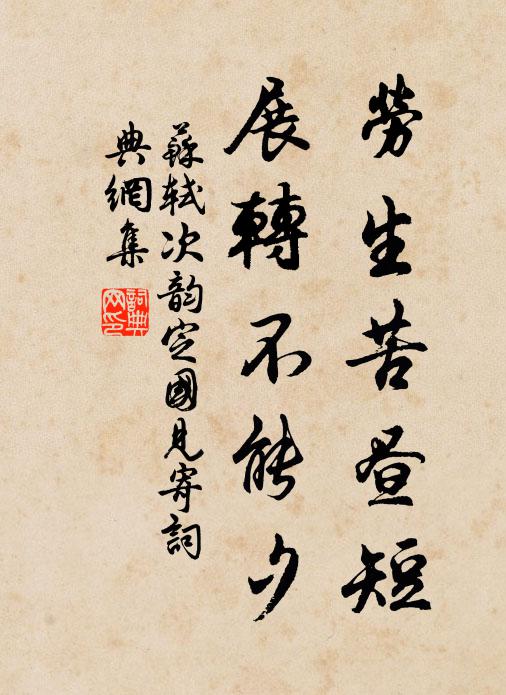 勞生苦昼短
展轉不能夕
蘇軾次韵定國見寄詞
典網集
詞典网印